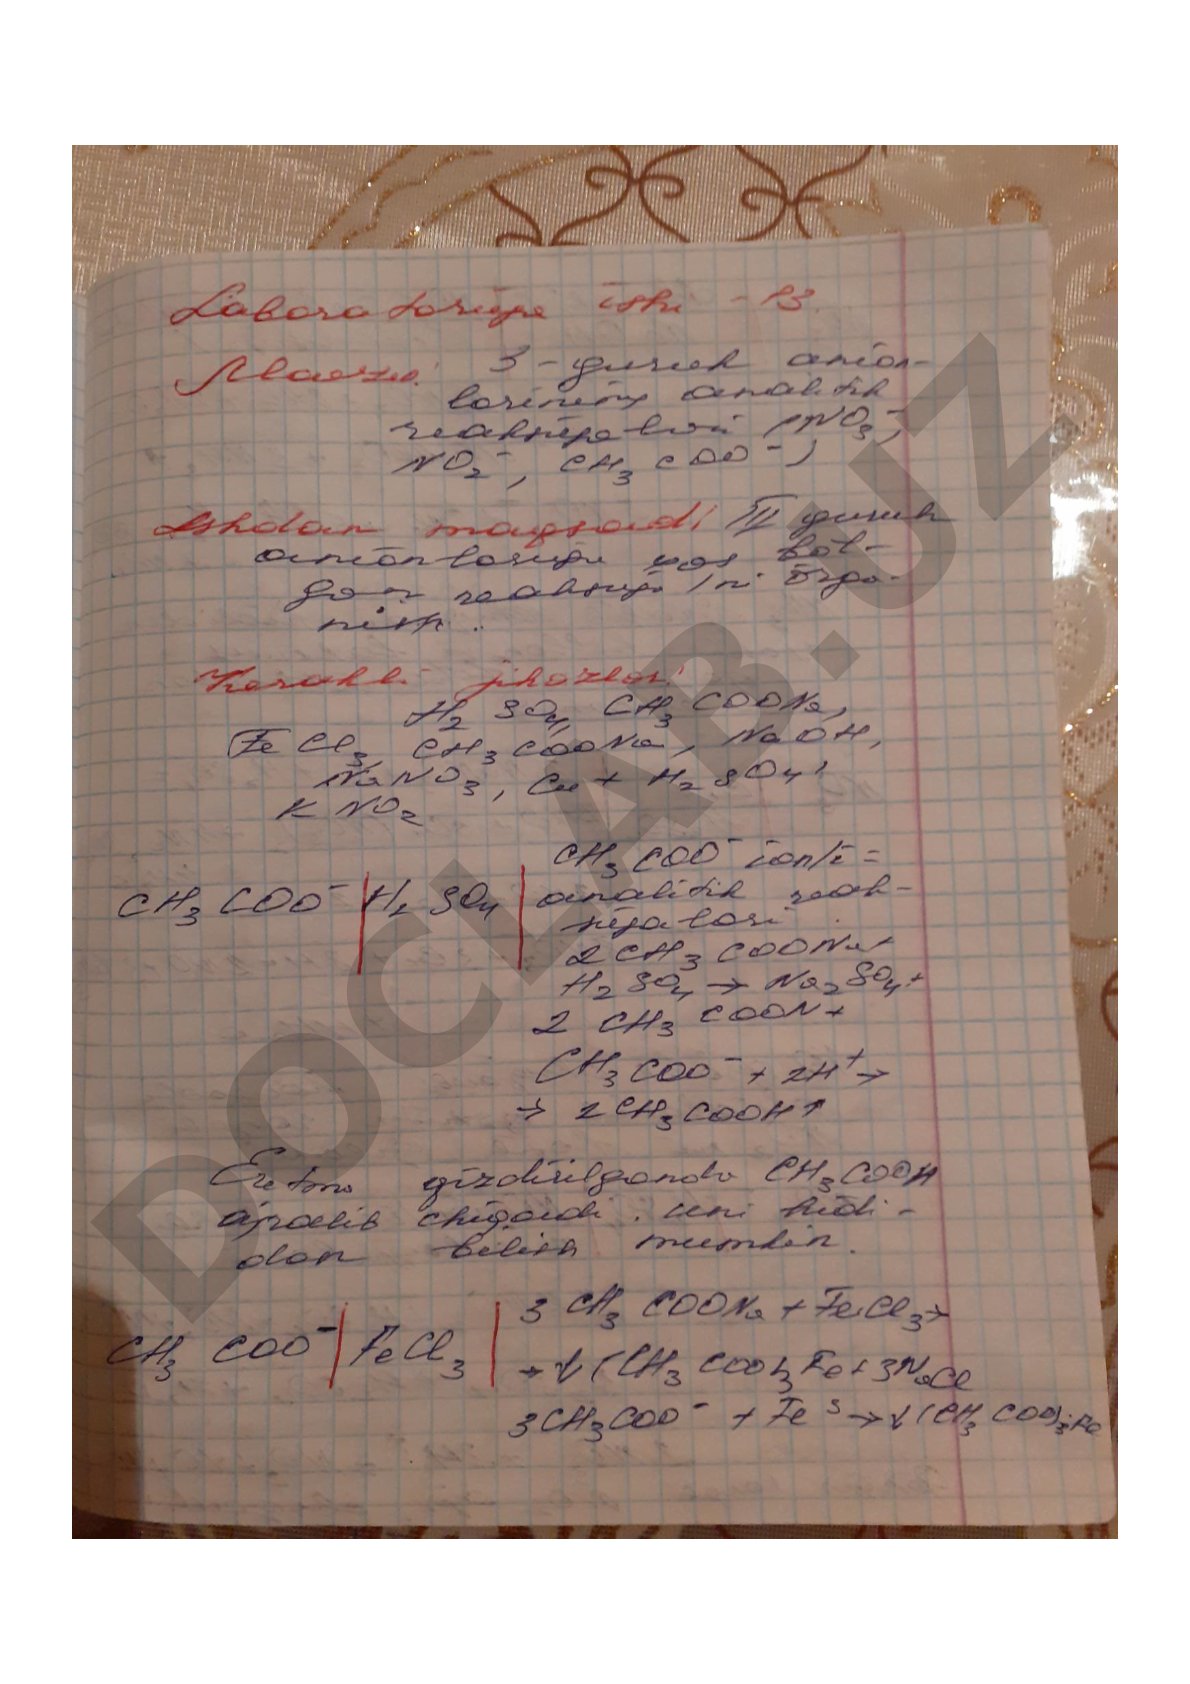 Laboratoriya ishi - 13.
Mavzu: 3 - guruh anion-
larining analitik
reaksiyalari (NO3-,
NO2-, CH3COO-)
Ishdan maqsadi III guruh
anionlariga xos bol-
gan reaksiya ni orga-
nish.
Kerakli jihozlar:
H2SO4, CH3COONa,
FeCl3, CH3COONa, NaOH,
NaNO3, Cu + H2SO4,
KNO2
CH3COO- ioni
CH3COO- | H2SO4 | analitik reak-
siyalari.
2CH3COONa+
H2SO4 → Na2SO4+
2 CH3COON+
CH3COO- + 2H+ →
→ 2CH3COOH↑
qizdirilganda CH3COOH
ajralib chiqadi. uni hidi-
dan bilish mumkin.
3 CH3COONa + FeCl3 →
CH3COO- | FeCl3 | → ↓(CH3COO)3Fe+3NaCl
3CH3COO- + Fe3 → ↓(CH3COO)3Fe
DOCLAB.UZ